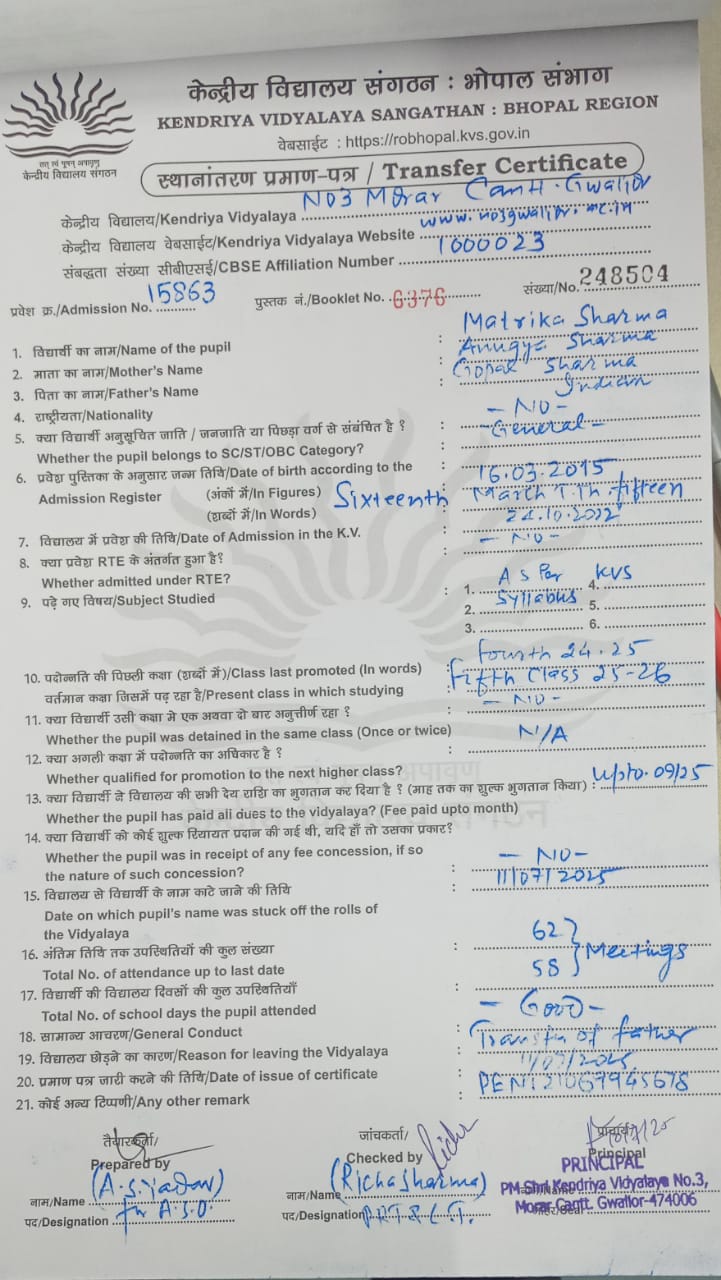 केन्द्रीय विद्यालय संगठन : भोपाल संभाग
KENDRIYA VIDYALAYA SANGATHAN : BHOPAL REGION
वेबसाईट : https://robhopal.kvs.gov.in
केन्द्रीय विद्यालय संगठन
स्थानांतरण प्रमाण-पत्र / Transfer Certificate
केन्द्रीय विद्यालय/Kendriya Vidyalaya NO3 Morar Cantt. Gwalior
केन्द्रीय विद्यालय वेबसाईट/Kendriya Vidyalaya Website
संबद्धता संख्या सीबीएसई/CBSE Affiliation Number 1000023
प्रवेश क्र./Admission No. 15863 पुस्तक नं./Booklet No. 6376 संख्या/No. 248504
1. विद्यार्थी का नाम/Name of the pupil : Matrika Sharma
2. माता का नाम/Mother's Name : Anugya Sharma
3. पिता का नाम/Father's Name : Gopal Sharma
4. राष्ट्रीयता/Nationality : Indian
5. क्या विद्यार्थी अनुसूचित जाति / जनजाति या पिछड़ा वर्ग से संबंधित है ? : - NO -
Whether the pupil belongs to SC/ST/OBC Category? - General -
6. प्रवेश पुस्तिका के अनुसार जन्म तिथि/Date of birth according to the : 16.03.2015
Admission Register (अंकों में/In Figures) Sixteenth March T. Th. fifteen
(शब्दों में/In Words)
7. विद्यालय में प्रवेश की तिथि/Date of Admission in the K.V. : 24.10.2022
8. क्या प्रवेश RTE के अंतर्गत हुआ है? : - NO -
Whether admitted under RTE?
9. पढ़े गए विषय/Subject Studied : 1. As Per 4. KVS
2. Syllabus 5.
3. 6.
10. पदोन्नति की पिछली कक्षा (शब्दों में)/Class last promoted (In words) : fourth 24-25
वर्तमान कक्षा जिसमें पढ़ रहा है/Present class in which studying fifth Class 25-26
11. क्या विद्यार्थी उसी कक्षा मे एक अथवा दो बार अनुत्तीर्ण रहा ? : - NO -
Whether the pupil was detained in the same class (Once or twice)
12. क्या अगली कक्षा में पदोन्नति का अधिकार है ? : N/A
Whether qualified for promotion to the next higher class?
13. क्या विद्यार्थी ने विद्यालय की सभी देय राशि का भुगतान कर दिया है ? (माह तक का शुल्क भुगतान किया) : Upto. 09/25
Whether the pupil has paid all dues to the vidyalaya? (Fee paid upto month)
14. क्या विद्यार्थी को कोई शुल्क रियायत प्रदान की गई थी, यदि हाँ तो उसका प्रकार?
Whether the pupil was in receipt of any fee concession, if so
the nature of such concession? : - NO -
15. विद्यालय से विद्यार्थी के नाम काटे जाने की तिथि : 11/07/2025
Date on which pupil's name was stuck off the rolls of
the Vidyalaya
16. अंतिम तिथि तक उपस्थितियों की कुल संख्या : 62 } Meetings
Total No. of attendance up to last date 58
17. विद्यार्थी की विद्यालय दिवसों की कुल उपस्थितियाँ :
Total No. of school days the pupil attended
18. सामान्य आचरण/General Conduct : - Good -
19. विद्यालय छोड़ने का कारण/Reason for leaving the Vidyalaya : Transfer of father
20. प्रमाण पत्र जारी करने की तिथि/Date of issue of certificate : 11/07/2025
21. कोई अन्य टिप्पणी/Any other remark : PEN: 21067945678
तैयारकर्ता/ जांचकर्ता/ प्राचार्य/
Prepared by Checked by Principal
PRINCIPAL
नाम/Name (A.S. Jadon) नाम/Name (Richa Sharma) PM Shri Kendriya Vidyalaya No.3,
पद/Designation for A.S.O. पद/Designation Morar Cantt. Gwalior-474006